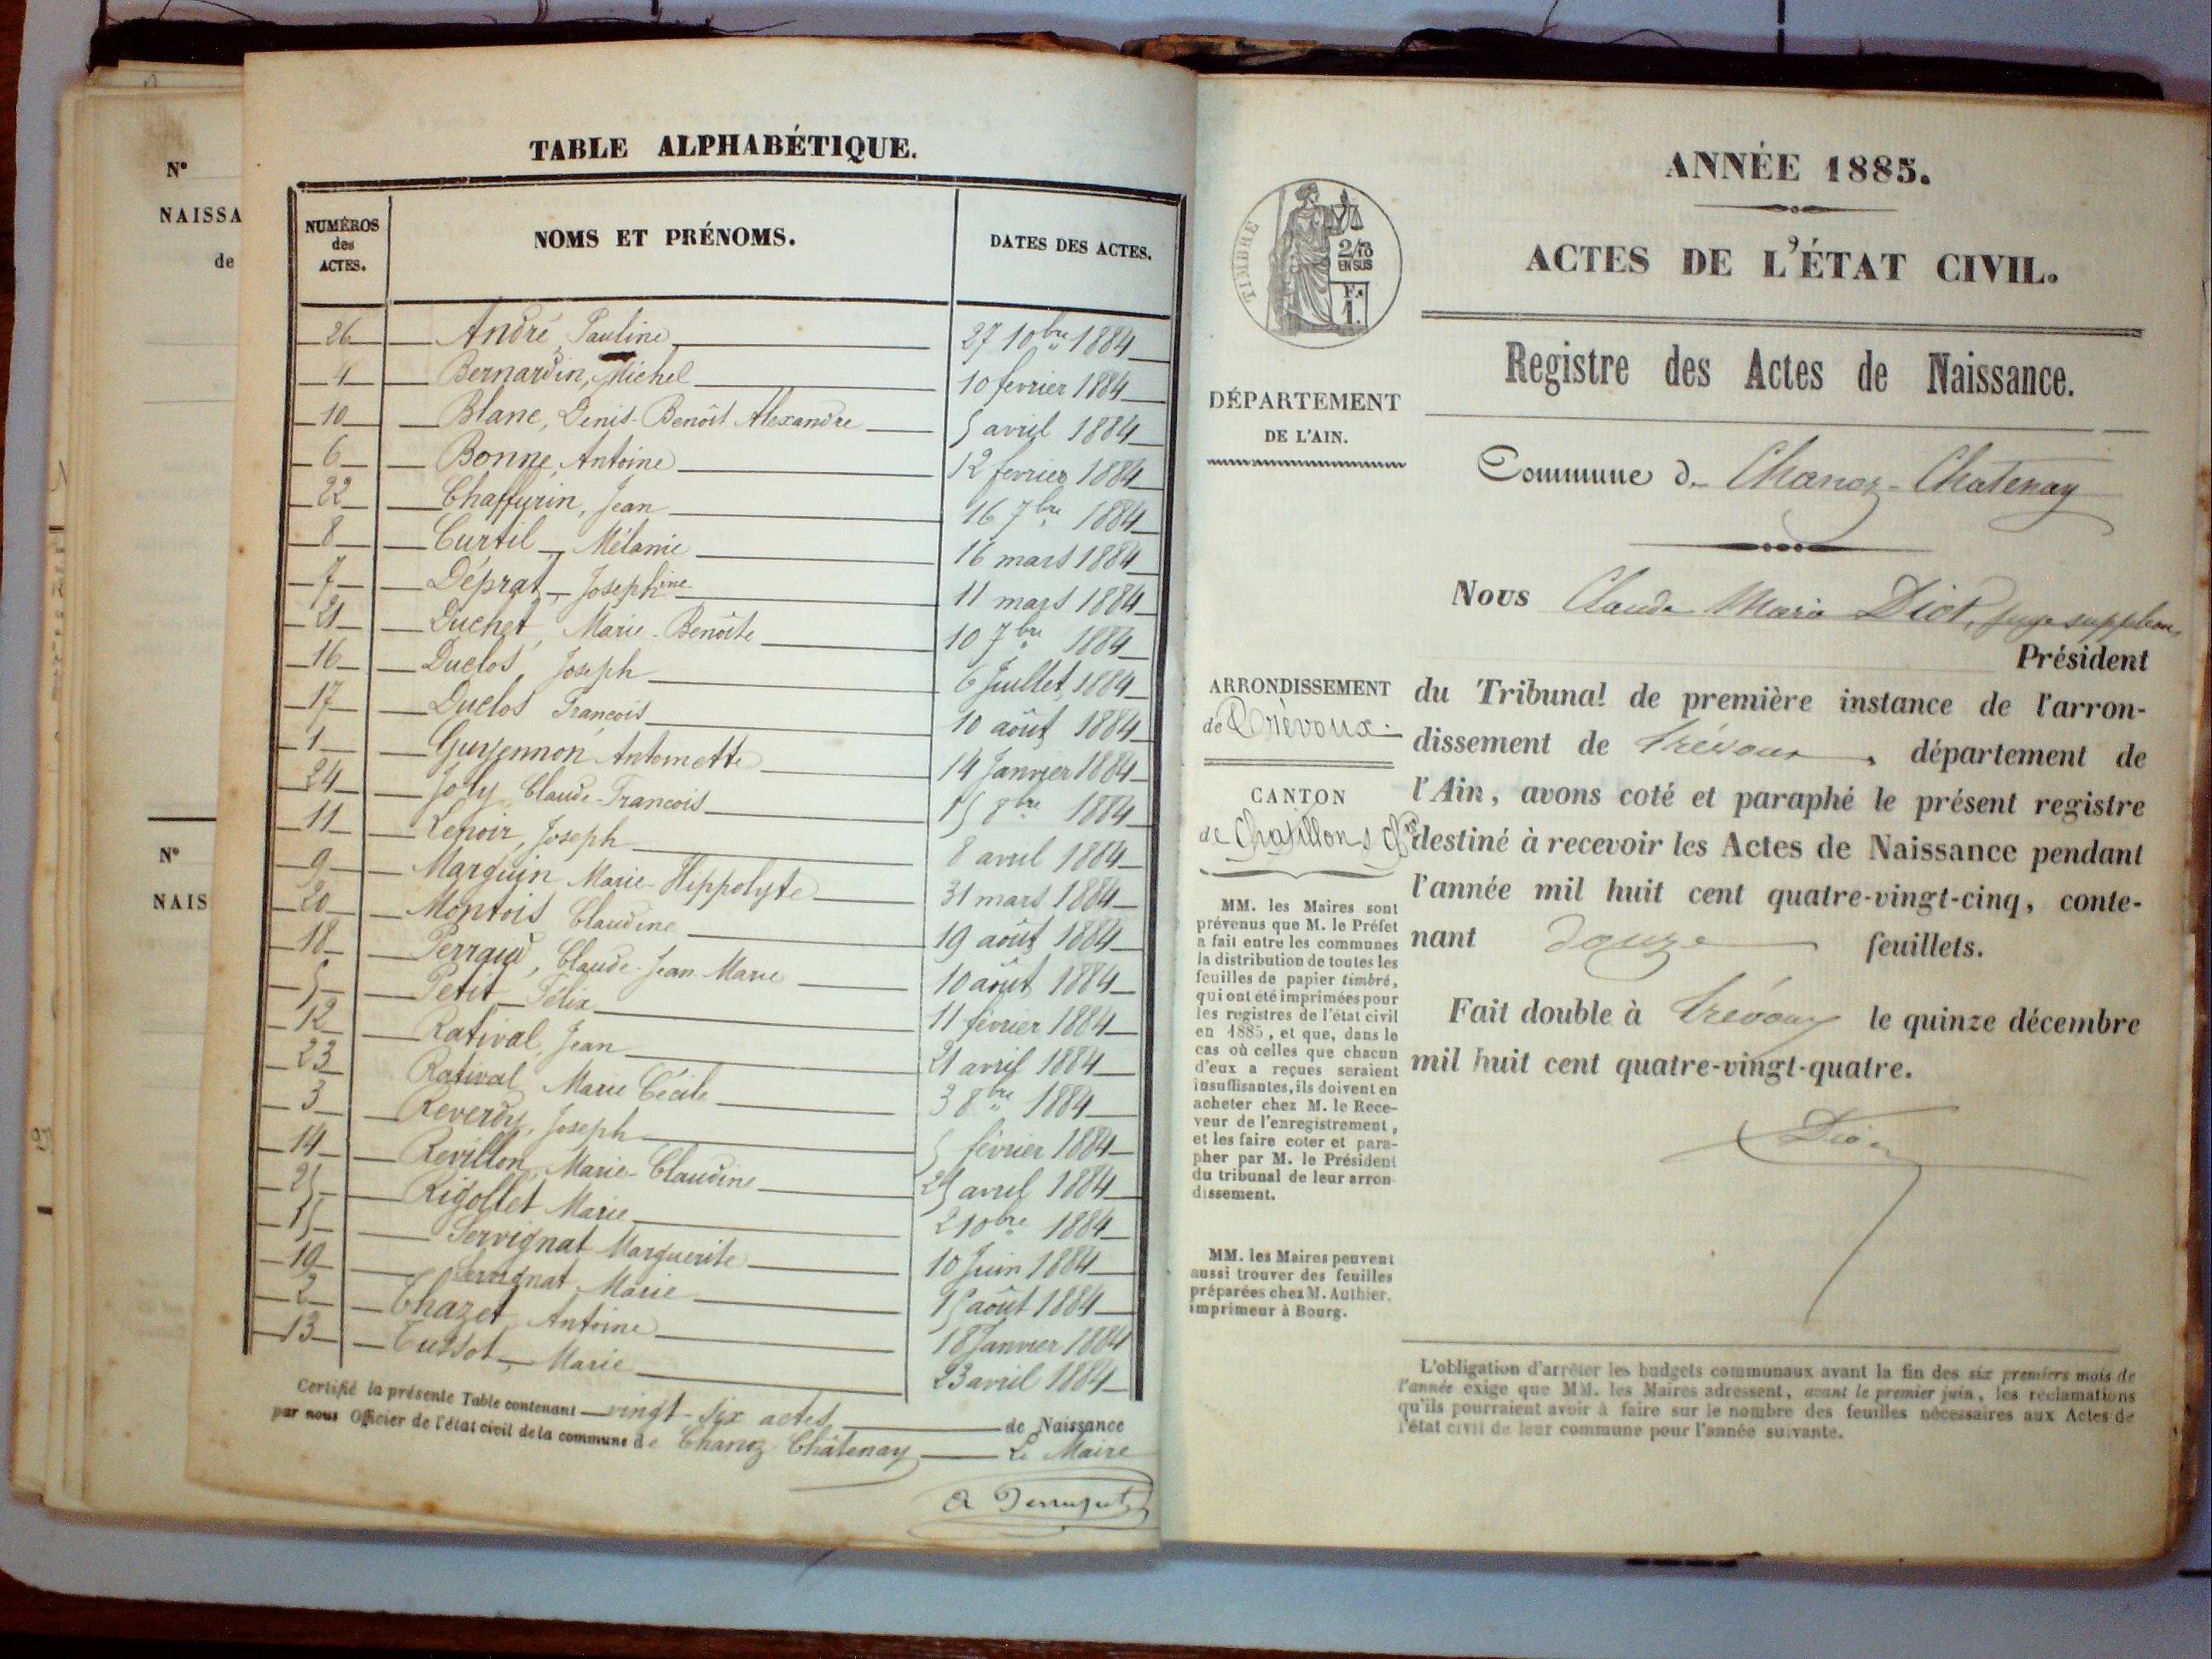 N°
NAISSA
de
N°
NAIS
TABLE ALPHABÉTIQUE.
NUMÉROS des ACTES.
NOMS ET PRÉNOMS.
DATES DES ACTES.
26 André, Pauline 27 10bre 1884
4 Bernardin, Michel 10 fevrier 1884
10 Blanc, Denis-Benoît Alexandre 5 avril 1884
6 Bonne, Antoine 12 fevrier 1884
22 Chaffurin, Jean 16 7bre 1884
8 Curtil, Mélanie 16 mars 1884
7 Déprat, Josephine 11 mars 1884
21 Duchet, Marie-Benoîte 10 7bre 1884
16 Duclos, Joseph 6 Juillet 1884
17 Duclos François 10 août 1884
1 Guyennon Antoinette 14 Janvier 1884
24 Joly Claude-François 15 8bre 1884
11 Lenoir, Joseph 8 avril 1884
9 Marguin Marie-Hippolyte 31 mars 1884
20 Montois Claudine 19 août 1884
18 Perraud, Claude-Jean-Marie 10 août 1884
5 Petit, Félix 11 février 1884
12 Ratival, Jean 21 avril 1884
23 Ratival, Marie Cécile 3 8bre 1884
3 Reverdy, Joseph 5 février 1884
14 Revillon, Marie-Claudine 25 avril 1884
25 Rigollet Marie 2 10bre 1884
15 Servignat Marguerite 10 Juin 1884
19 Servignat, Marie 15 août 1884
2 Chazet, Antoine 18 Janvier 1884
13 Cussot, Marie 23 avril 1884
Certifié la présente Table contenant vingt-six actes de Naissance
par nous Officier de l'état civil de la commune de Chanoz-Châtenay Le Maire
TIMBRE
2/10
EN SUS
F.
1.
DÉPARTEMENT
DE L'AIN.
ARRONDISSEMENT
de Trévoux
CANTON
de Chatillon s Ch
MM. les Maires sont
prévenus que M. le Préfet
a fait entre les communes
la distribution de toutes les
feuilles de papier timbré,
qui ont été imprimées pour
les registres de l'état civil
en 1885, et que, dans le
cas où celles que chacun
d'eux a reçues seraient
insuffisantes, ils doivent en
acheter chez M. le Rece-
veur de l'enregistrement,
et les faire coter et para-
pher par M. le Président
du tribunal de leur arron-
dissement.
MM. les Maires peuvent
aussi trouver des feuilles
préparées chez M. Authier,
imprimeur à Bourg.
ANNÉE 1885.
ACTES DE L'ÉTAT CIVIL.
Registre des Actes de Naissance.
Commune de Chanoz-Chatenay
Nous Claude Marie Diot, juge suppléant
Président
du Tribunal de première instance de l'arron-
dissement de Trévoux, département de
l'Ain, avons coté et paraphé le présent registre
destiné à recevoir les Actes de Naissance pendant
l'année mil huit cent quatre-vingt-cinq, conte-
nant douze feuillets.
Fait double à Trévoux le quinze décembre
mil huit cent quatre-vingt-quatre.
Diot
L'obligation d'arrêter les budgets communaux avant la fin des six premiers mois de
l'année exige que MM. les Maires adressent, avant le premier juin, les réclamations
qu'ils pourraient avoir à faire sur le nombre des feuilles nécessaires aux Actes de
l'état civil de leur commune pour l'année suivante.